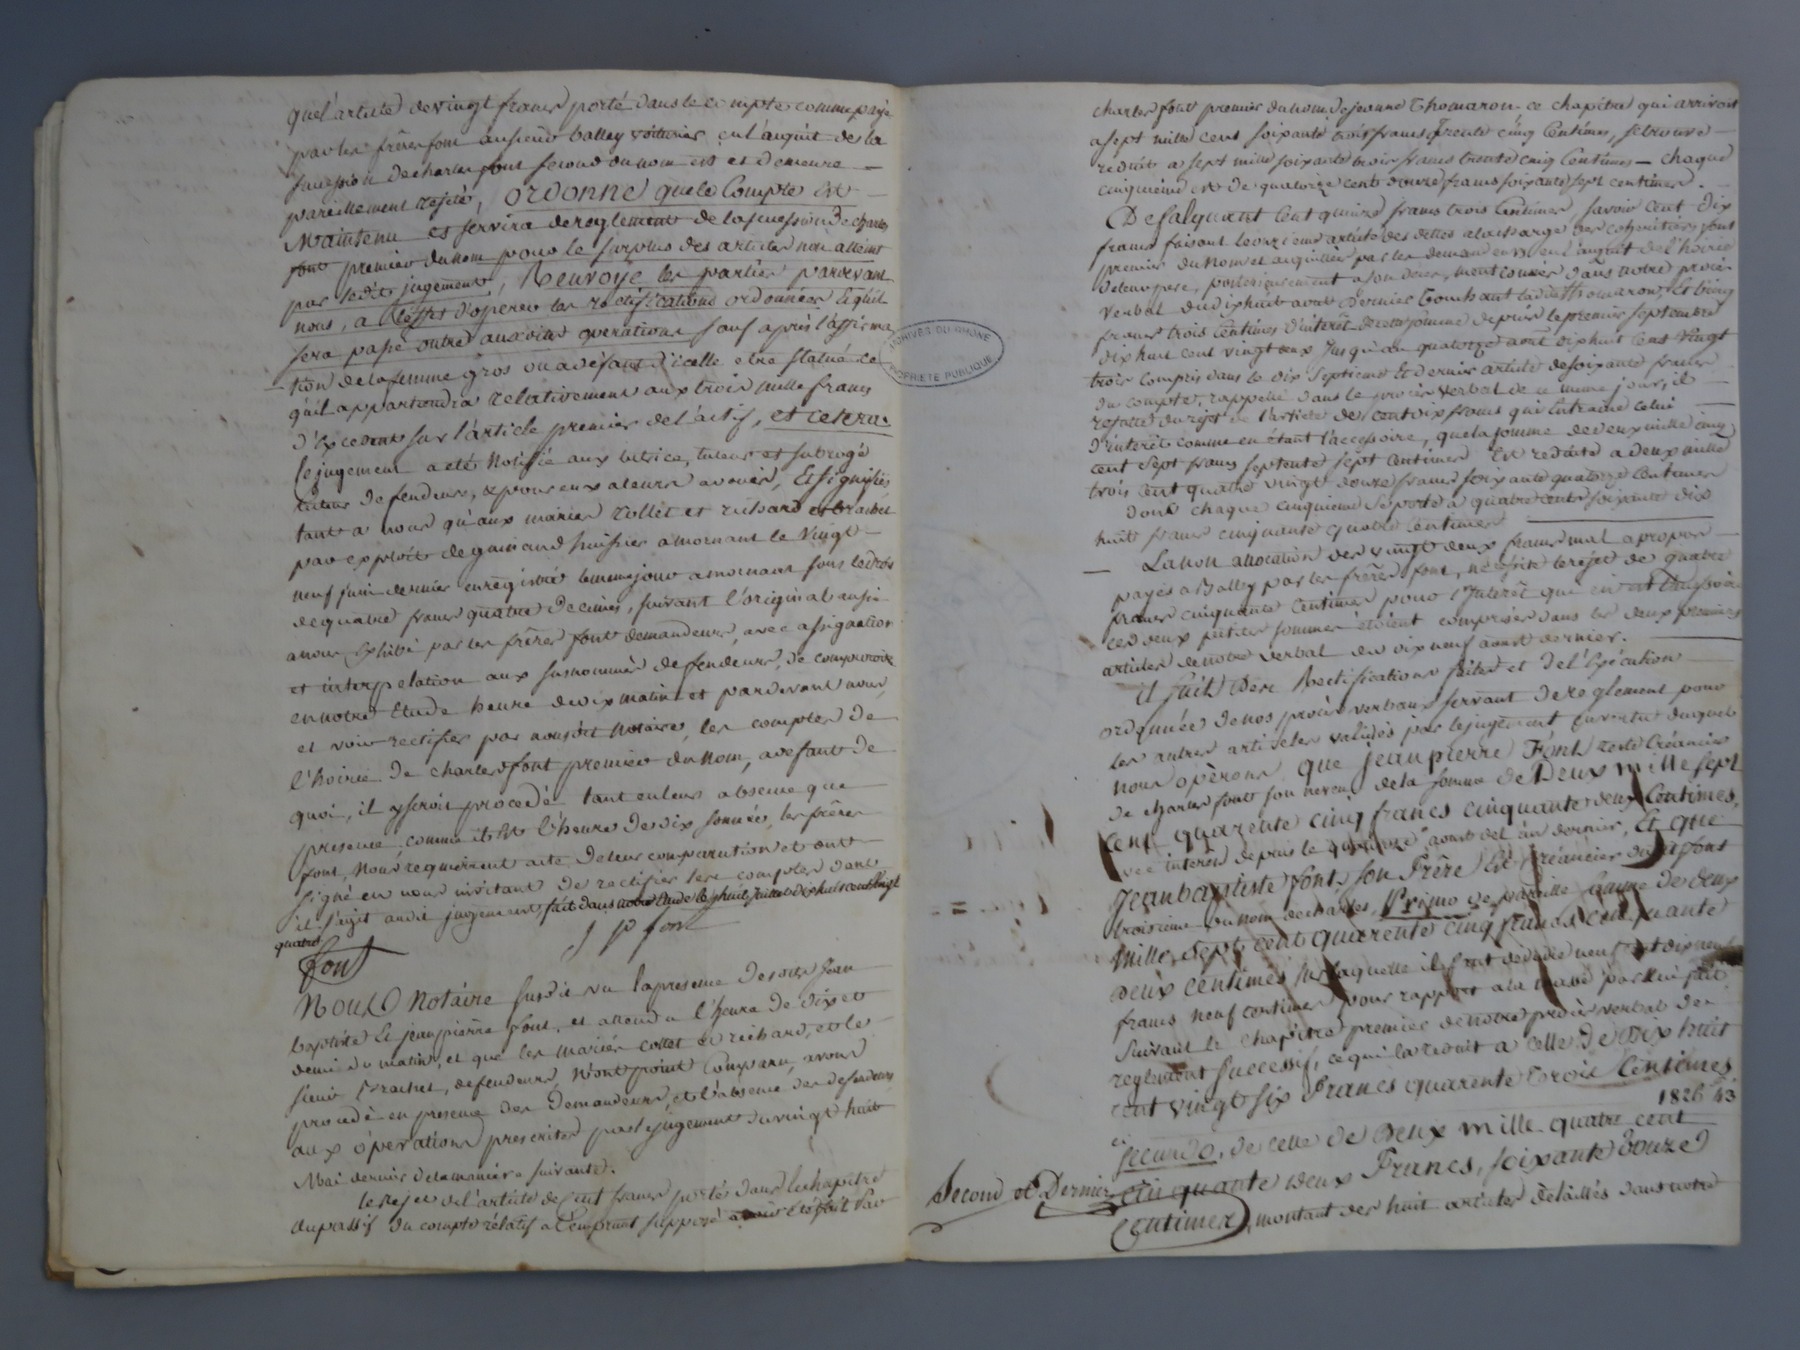 que l'article de vingt francs porté dans le compte comme payé
par les frères font au sieur balley voiturier, en l'acquit de la
succession de charles font second du nom est et demeure —
pareillement rejeté, ordonne que le Compte est —
Maintenu et servira de reglement de la succession de charles
font premier du nom pour le surplus des articles non atteint
par ledit jugement, Renvoye les parties pardevant
nous, a l'effet d'opérer les rectifications ordonnées Et qu'il
sera passé outre aux dites operations sauf après l'affirma
tion de la femme gros ou a défaut d'icelle etre statué ce
qu'il appartiendra relativement aux trois mille francs
d'Excedent sur l'article premier de l'actif, et cetera.
Ce jugement a été Notifié aux tutrice, tuteur et subrogé
tuteur defendeurs, & pour eux a leurs avoués, Et signifiés
tant a nous qu'aux mariés collet et richard et brachet
par exploit de huissier a mornant le Vingt —
neuf juin dernier enregistré le meme jour a mornant sous le droit
de quatre francs quatre decimes, suivant l'original aussi
a nous Exhibé par les frères font demandeurs, avec assignation
et interpelation aux susnommés defendeurs, de comparoitre
en notre Etude heure de dix matin et pardevant nous,
et voir rectifier par nousdit Notaire, les comptes de
l'hoirie de charles font premier du nom, a defaut de
quoi, il y seroit procedé tant en leur absence que
presence comme il Est l'heure de dix sonnée, les frères
font, Nous requièrent acte de leur comparution et ont
signé en nous invitant de rectifier les comptes dont
il s'agit audit jugement, fait dans notre Etude le huit juillet dix huit cent Vingt
quatre
J P font
font
Nous Notaire susdit vu la presence desdits Jean
baptiste Et jean pierre font, et attendu l'heure de dix et
demi du matin, et que les mariés collet et richard, et le
sieur Brachet, defendeurs, N'ont point Comparu, avons
procédé en presence des Demandeurs, et l'absence des defendeurs
aux opérations prescrites par le jugement du vingt huit
Mai dernier de la maniere suivante.
le rejet de l'article de Cent francs portés dans le chapitre
du passif du compte rélatif a l'emprunt supposé avoir été fait par
ARCHIVES DU RHONE
PROPRIÉTÉ PUBLIQUE
charles font premier du nom, de jeanne Thomaron — ce chapitre qui arrivoit
a sept mille cent soixante trois francs trente cinq Centimes, se trouve —
reduit a sept mille soixante trois francs trente cinq Centimes — chaque
cinquième est de quatorze cent douze francs soixante sept centimes. —
Defalquant Cent quinze francs trois Centimes, savoir cent dix
francs faisant le article des dettes a la charge des cohéritiers font
premier du Nom et acquittée par les demandeurs en l'acquit de l'hoirie
de leur père, postérieurement a son deces, mentionnés dans notre procès
Verbal du dix huit aout dernier touchant ladite Thomaron, Et cinq
francs trois Centimes d'intérêt de cette somme depuis le premier septembre
dix huit cent vingt deux jusqu'au quatorze aout dix huit Cent Vingt
trois compris dans le dix septieme Et dernier article de soixante francs
du compte, rappellé dans le procès verbal de ce meme jour, il —
resulte du rejet de l'article de cent dix francs qui Entraine celui —
d'intérêts comme en étant l'accessoire, que la somme de deux mille cinq
cent sept francs septente sept Centimes Est reduite a deux mille
trois cent quatre vingt douze francs soixante quatorze Centimes
dont chaque cinquieme se porte a quatre cents soixante dix
huit francs cinquante quatre Centimes
— La non allocation des vingt deux francs mal a propos —
payés a Balley par les frères font, nécessite le rejet de quatre
francs cinquante Centimes pour l'Interêt qui en est l'accessoire
ces deux petites sommes étoient comprises dans les deux premiers
articles de notre verbal du dix neuf aout dernier.
Il suit des Rectifications faites et de l'Exécution
ordonnée de nos procès verbaux servant de reglement pour
les autres articles validés par le jugement en vertu duquel
nous opérons que jean pierre Font reste Créancier
de charles font son neveu de la somme de Deux mille sept
Cent quarente cinq francs cinquante deux Centimes,
vec interets depuis le quinze aout de l'an dernier, Et que
Jean baptiste font, son Frère Est créancier dudit font
troisieme du nom de charles, Primo de pareille somme de deux
Mille, sept cent quarente cinq francs cinquante
deux centimes sur laquelle il faut deduire neuf cent dix neuf
francs neuf centimes pour rapport a la masse par lui fait
suivant le chapitre premier de notre procès verbal de
reglement successif, ce qui la reduit a celle de Dix huit
cent vingt six Francs quarente trois Centimes
ci 1826 43
Secundo, de celle de Deux mille quatre cent
cinquante deux Francs, soixante douze
Centimes, montant des huit articles détaillés dans notre
Second et Dernier